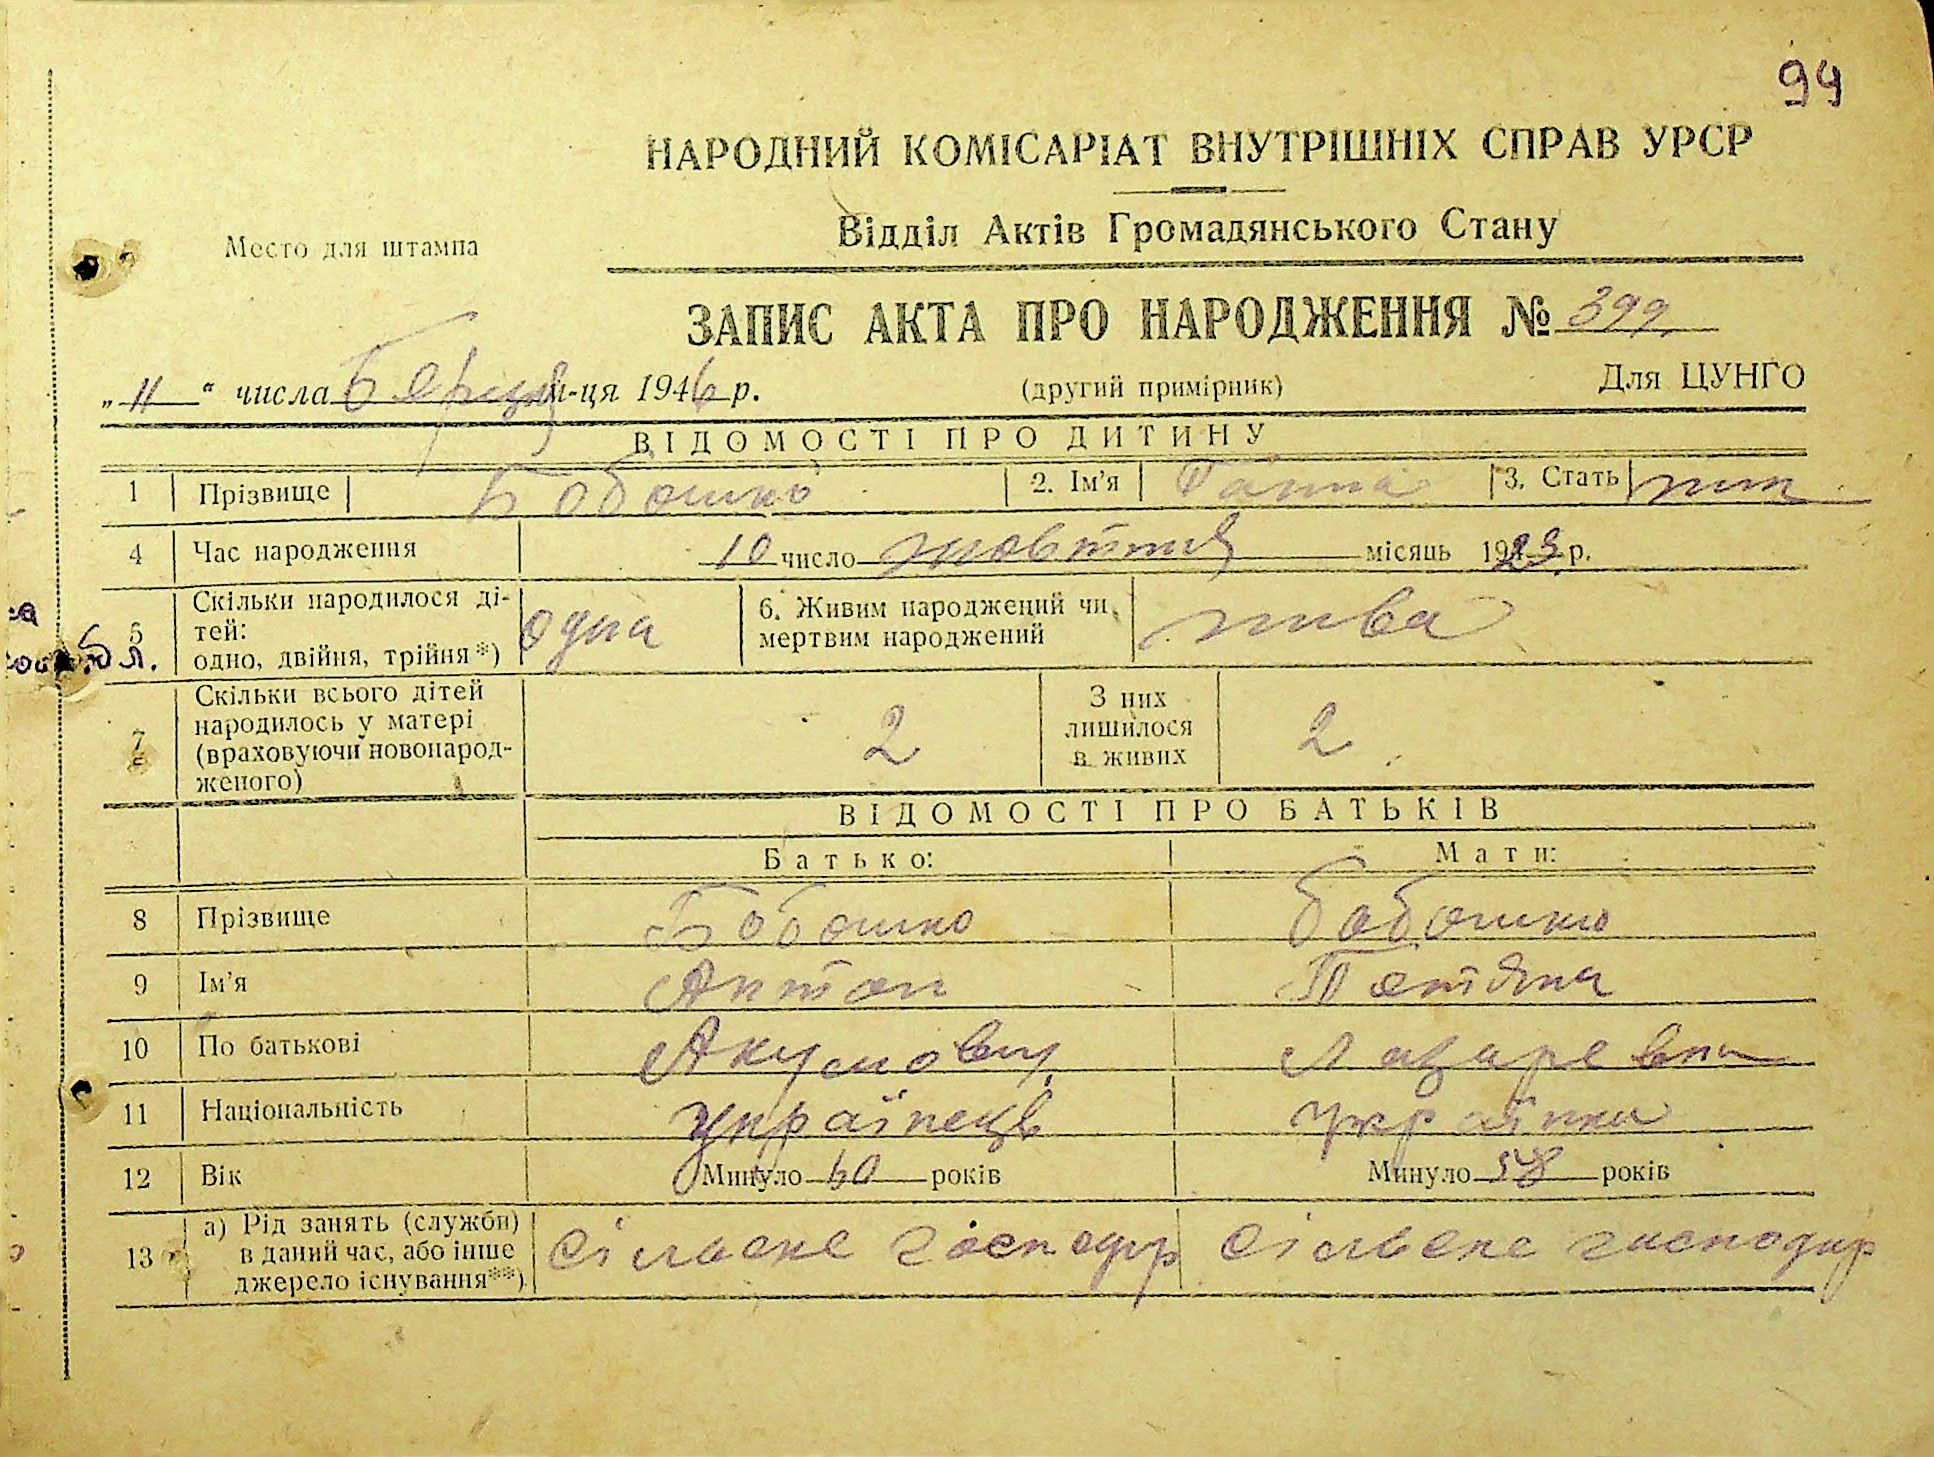 94
НАРОДНИЙ КОМІСАРІАТ ВНУТРІШНІХ СПРАВ УРСР
Відділ Актів Громадянського Стану
Место для штампа
ЗАПИС АКТА ПРО НАРОДЖЕННЯ № 399
„ 11 “ числа Березня м-ця 1946 р. (другий примірник) Для ЦУНГО
ВІДОМОСТІ ПРО ДИТИНУ
1 Прізвище Бобошко 2. Ім'я Ганна 3. Стать жін
4 Час народження 10 число жовтня місяць 1923 р.
5 Скільки народилося ді-
тей:
одно, двійня, трійня*) одна 6. Живим народжений чи
мертвим народжений жива
7 Скільки всього дітей
народилось у матері
(враховуючи новонарод-
женого) 2 З них
лишилося
в живих 2
ВІДОМОСТІ ПРО БАТЬКІВ
Батько: Мати:
8 Прізвище Бобошко Бобошко
9 Ім'я Антон Тетяна
10 По батькові Акумович Лазаревна
11 Національність українець українка
12 Вік Минуло 60 років Минуло 58 років
13 а) Рід занять (служби)
в даний час, або інше
джерело існування**) сільське господар сільське господар